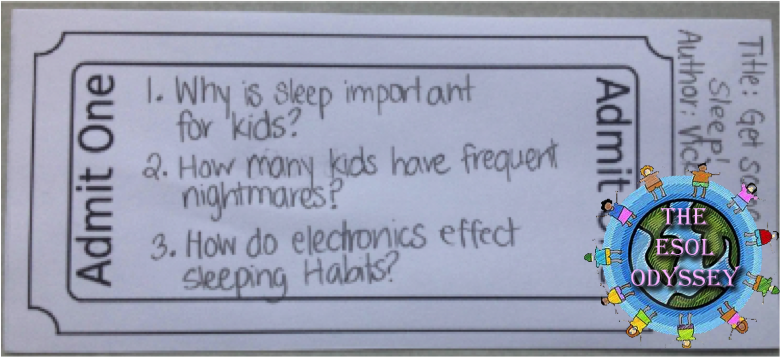 Admit One
1. Why is sleep important
for kids?
2. How many kids have frequent
nightmares?
3. How do electronics effect
sleeping Habits?
Admit
Title: Get
Sleep!
Author:
THE
ESOL
ODYSSEY